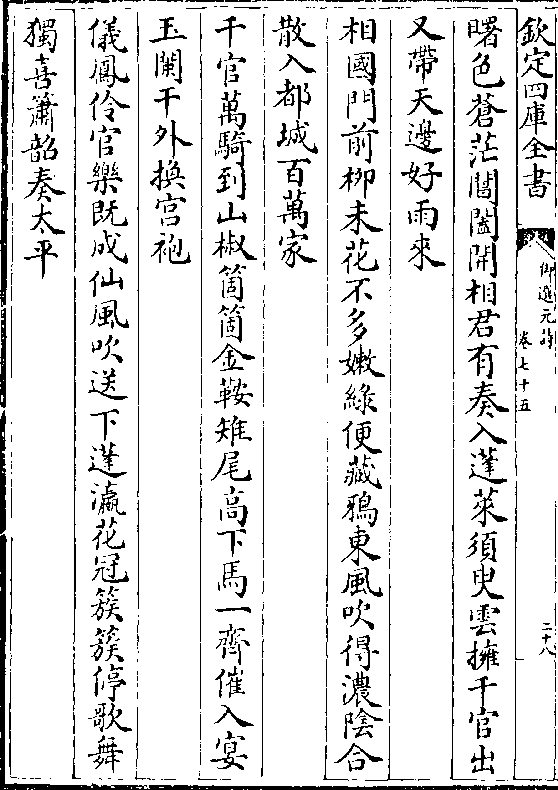 欽定四庫全書
御選元詩
卷七十五
二十八
曙色蒼茫閶闔開相君有奏入蓬萊須臾雲擁千官出
又帶天邊好雨來
相國門前柳未花不多嫩綠便藏鴉東風吹得濃陰合
散入都城百萬家
千官萬騎到山椒箇箇金鞍雉尾高下馬一齊催入宴
玉闌干外換宮袍
儀鳳伶官樂既成仙風吹送下蓬瀛花冠簇簇停歌舞
獨喜簫韶奏太平